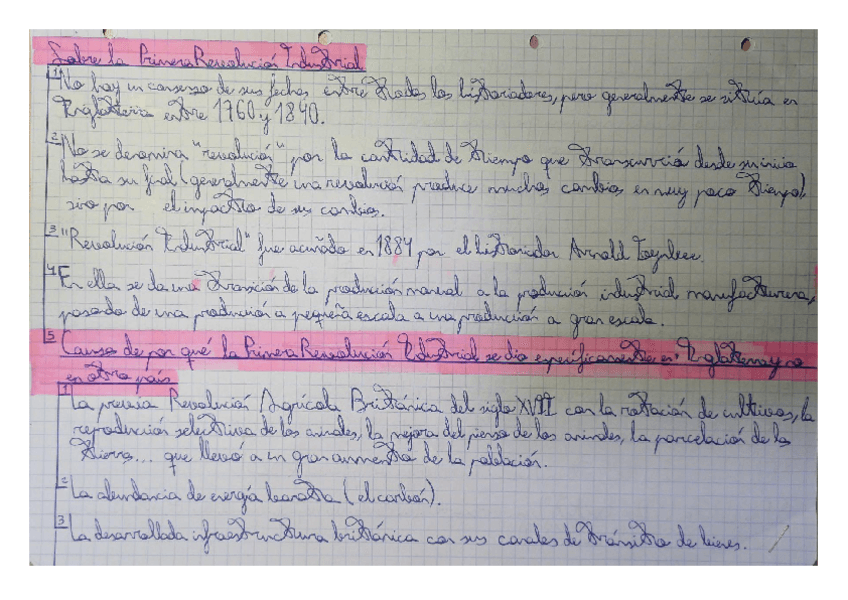 Sobre la Primera Revolución Industrial
1 No hay un consenso de sus fechas entre todos los historiadores, pero generalmente se sitúa en
Inglaterra entre 1760 y 1840.
2 No se denomina "revolución" por la cantidad de tiempo que transcurrió desde su inicio
hasta su final (generalmente una revolución produce muchos cambios en muy poco tiempo)
sino por el impacto de sus cambios.
3 "Revolución Industrial" fue acuñado en 1884 por el historiador Arnold Toynbee.
4 En ella se da una transición de la producción manual a la producción industrial manufacturera,
pasando de una producción a pequeña escala a una producción a gran escala.
5 Causas de por qué la Primera Revolución Industrial se dio específicamente en Inglaterra y no
en otro país
1 La previa Revolución Agrícola Británica del siglo XVII con la rotación de cultivos, la
reproducción selectiva de los animales, la mejora del pienso de los animales, la parcelación de la
tierra... que llevó a un gran aumento de la población.
2 La abundancia de energía barata (el carbón).
3 La desarrollada infraestructura británica con sus canales de tránsito de bienes.